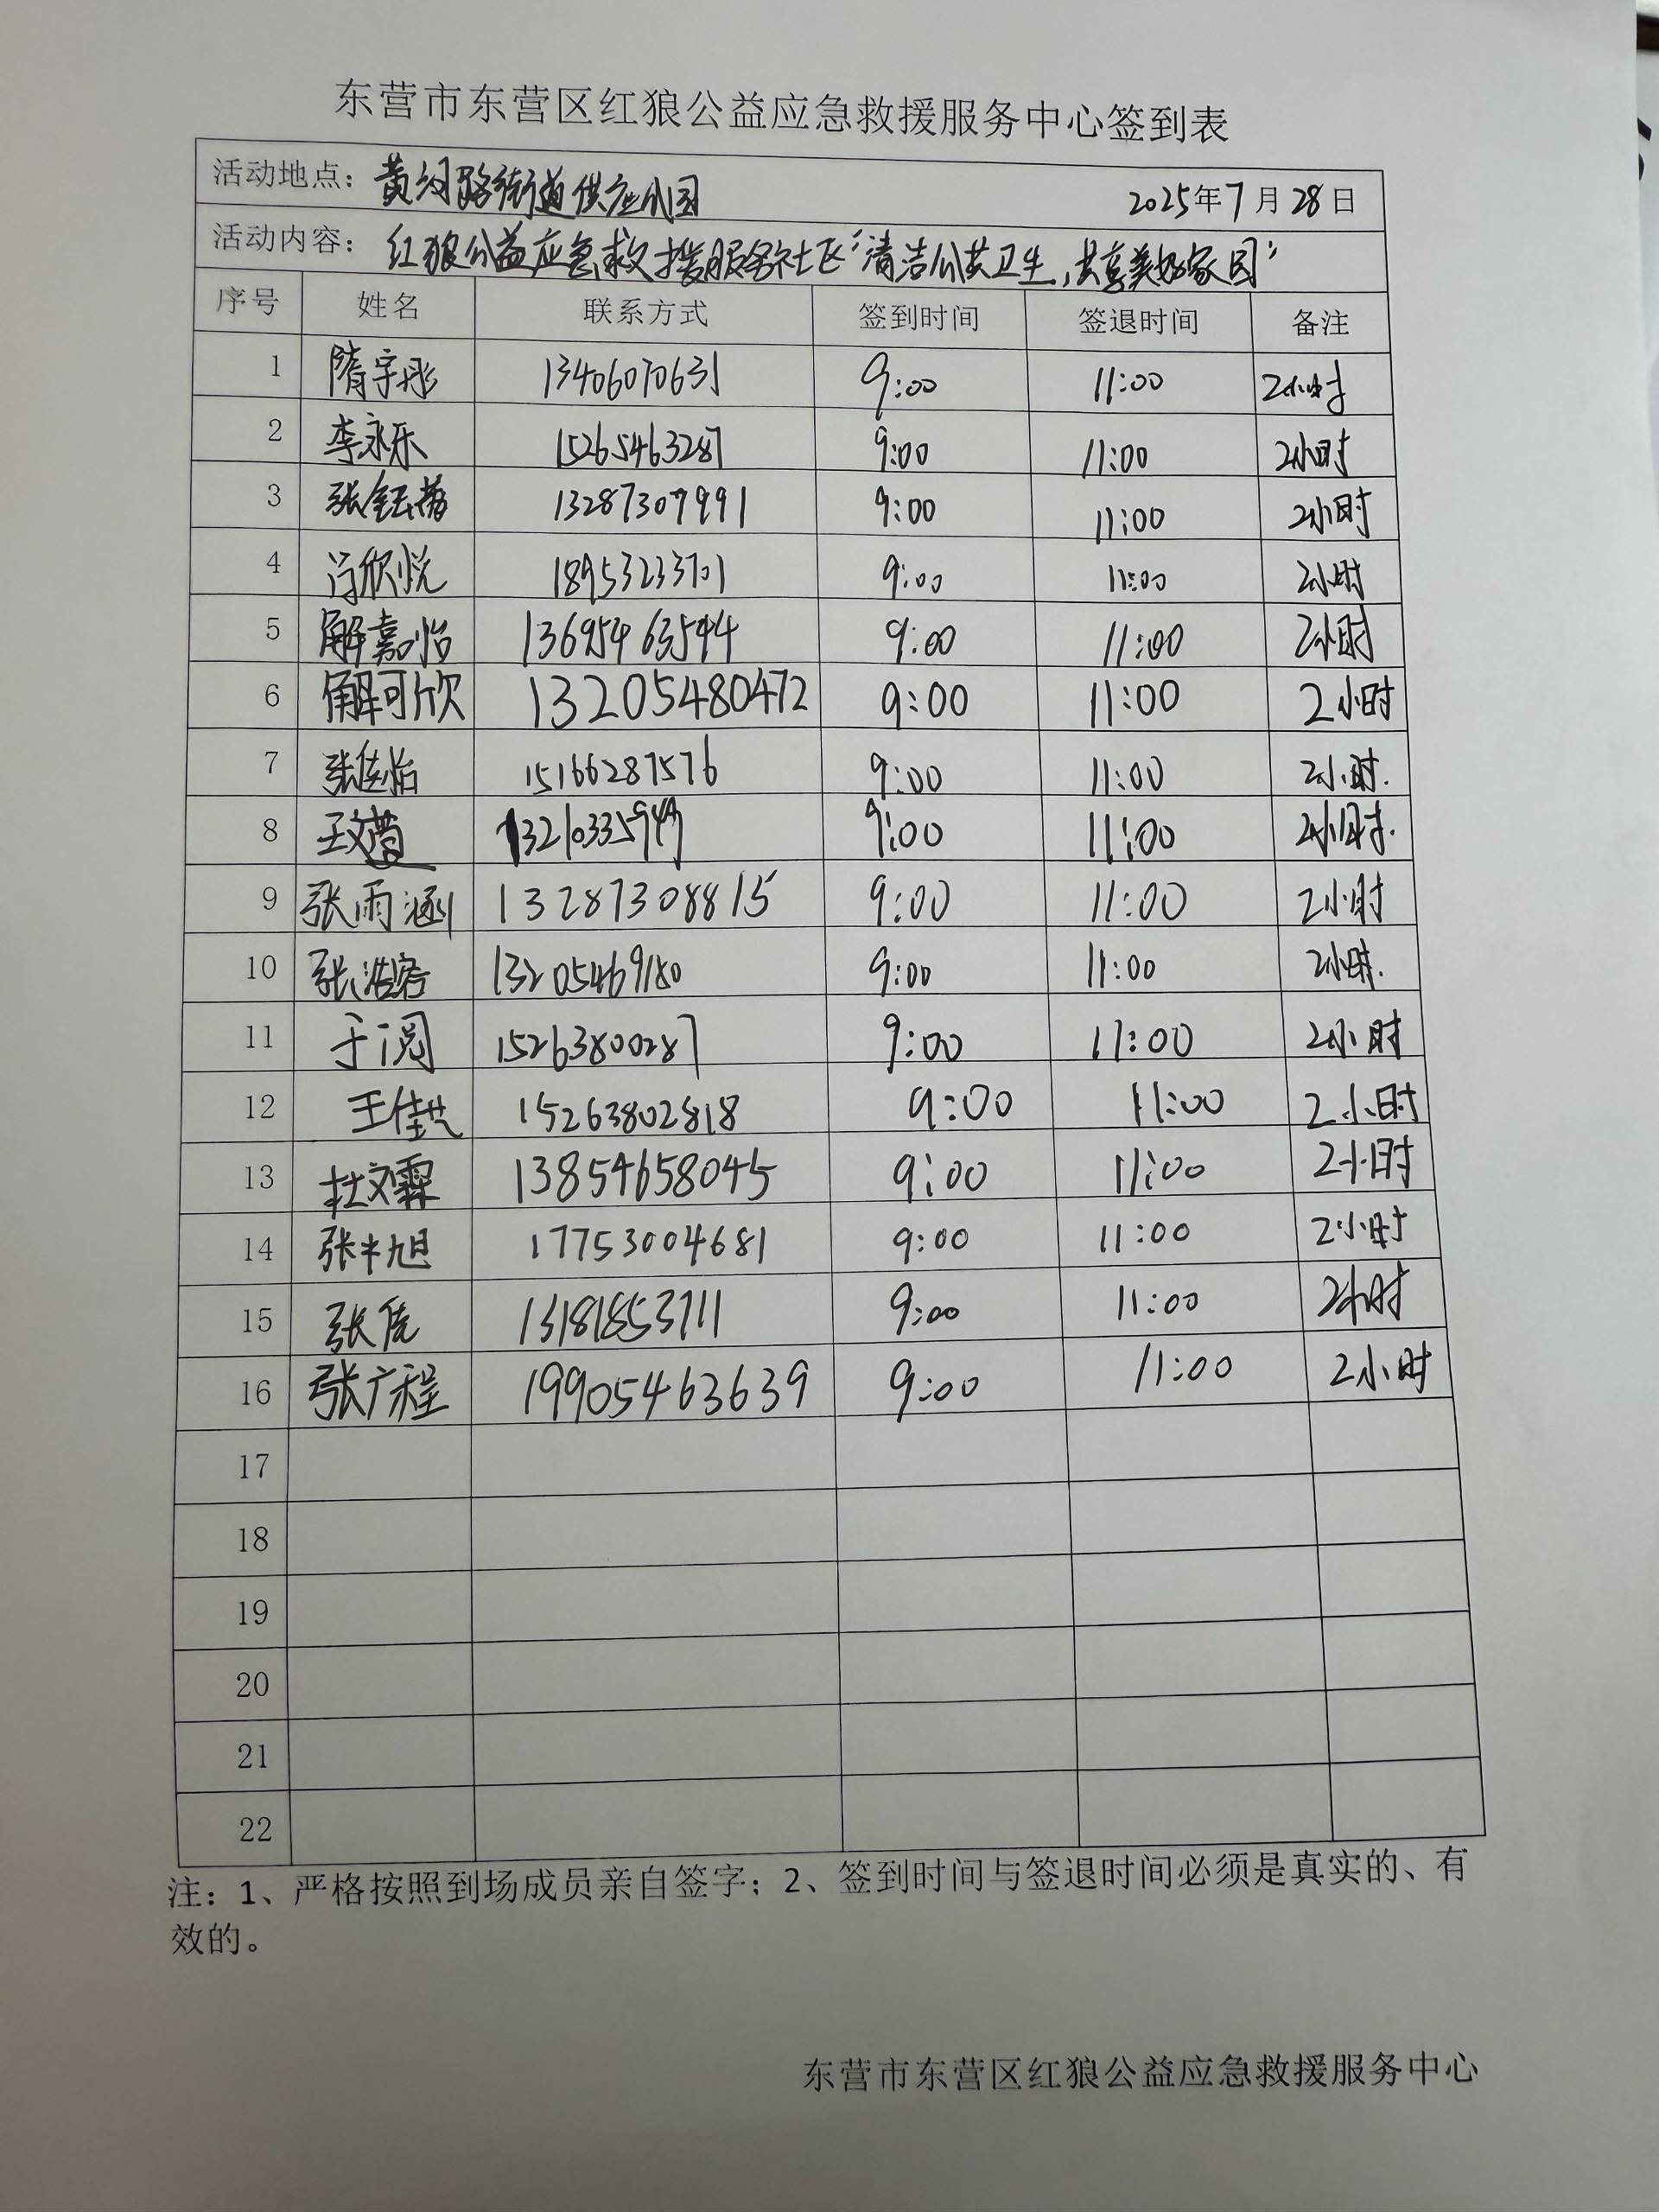 东营市东营区红狼公益应急救援服务中心签到表
活动地点：黄河路街道供应公园 2025年7月28日
活动内容：红狼公益应急救援服务社区“清洁公共卫生，共享美好家园”
序号 姓名 联系方式 签到时间 签退时间 备注
1 隋宇彤 13406070631 9:00 11:00 2小时
2 李永乐 15265463287 9:00 11:00 2小时
3 张钰 13287309991 9:00 11:00 2小时
4 冯欣悦 18953233701 9:00 11:00 2小时
5 解嘉怡 13695463544 9:00 11:00 2小时
6 解可欣 13205480472 9:00 11:00 2小时
7 张佳怡 15166287576 9:00 11:00 2小时.
8 王文 9:00 11:00 2小时.
9 张雨涵 13287308815 9:00 11:00 2小时
10 张浩容 13205469180 9:00 11:00 2小时.
11 于阅 15263800287 9:00 11:00 2小时
12 王佳 15263802818 9:00 11:00 2小时
13 杜文霖 13854658045 9:00 11:00 2小时
14 张旭 17753004681 9:00 11:00 2小时
15 张 13181853711 9:00 11:00 2小时
16 张广程 19905463639 9:00 11:00 2小时
17
18
19
20
21
22
注：1、严格按照到场成员亲自签字；2、签到时间与签退时间必须是真实的、有
效的。
东营市东营区红狼公益应急救援服务中心